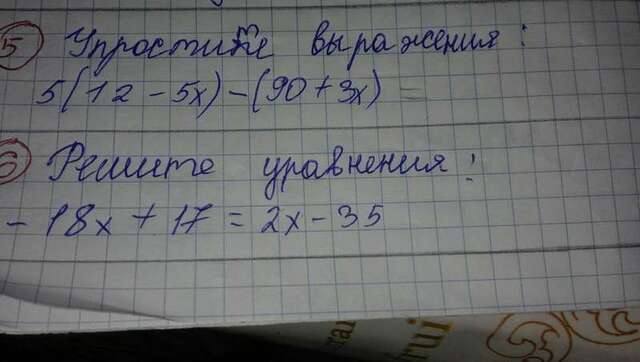 5 Упростите выражения:
5(12 - 5x) - (90 + 3x) =
6 Решите уравнения:
- 18x + 17 = 2x - 35